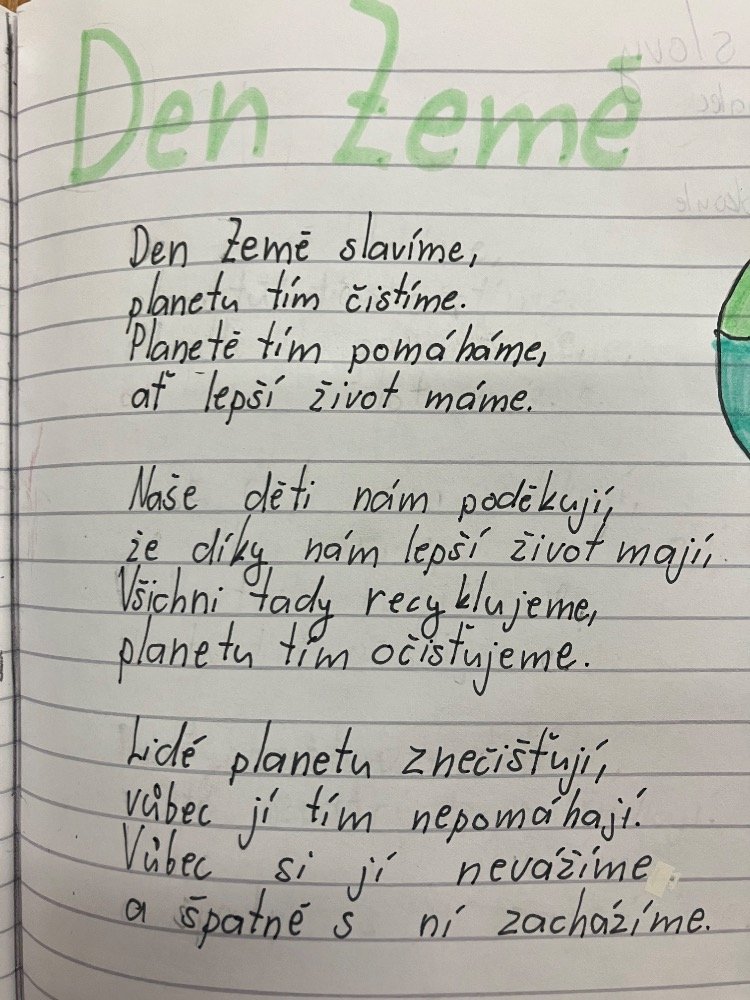 Den Země
Den Země slavíme,
planetu tím čistíme.
Planetě tím pomáháme,
ať lepší život máme.
Naše děti nám poděkují,
že díky nám lepší život mají,
Všichni tady recyklujeme,
planetu tím očisťujeme.
Lidé planetu znečišťují,
vůbec jí tím nepomáhají.
Vůbec si jí nevážíme
a špatně s ní zacházíme.